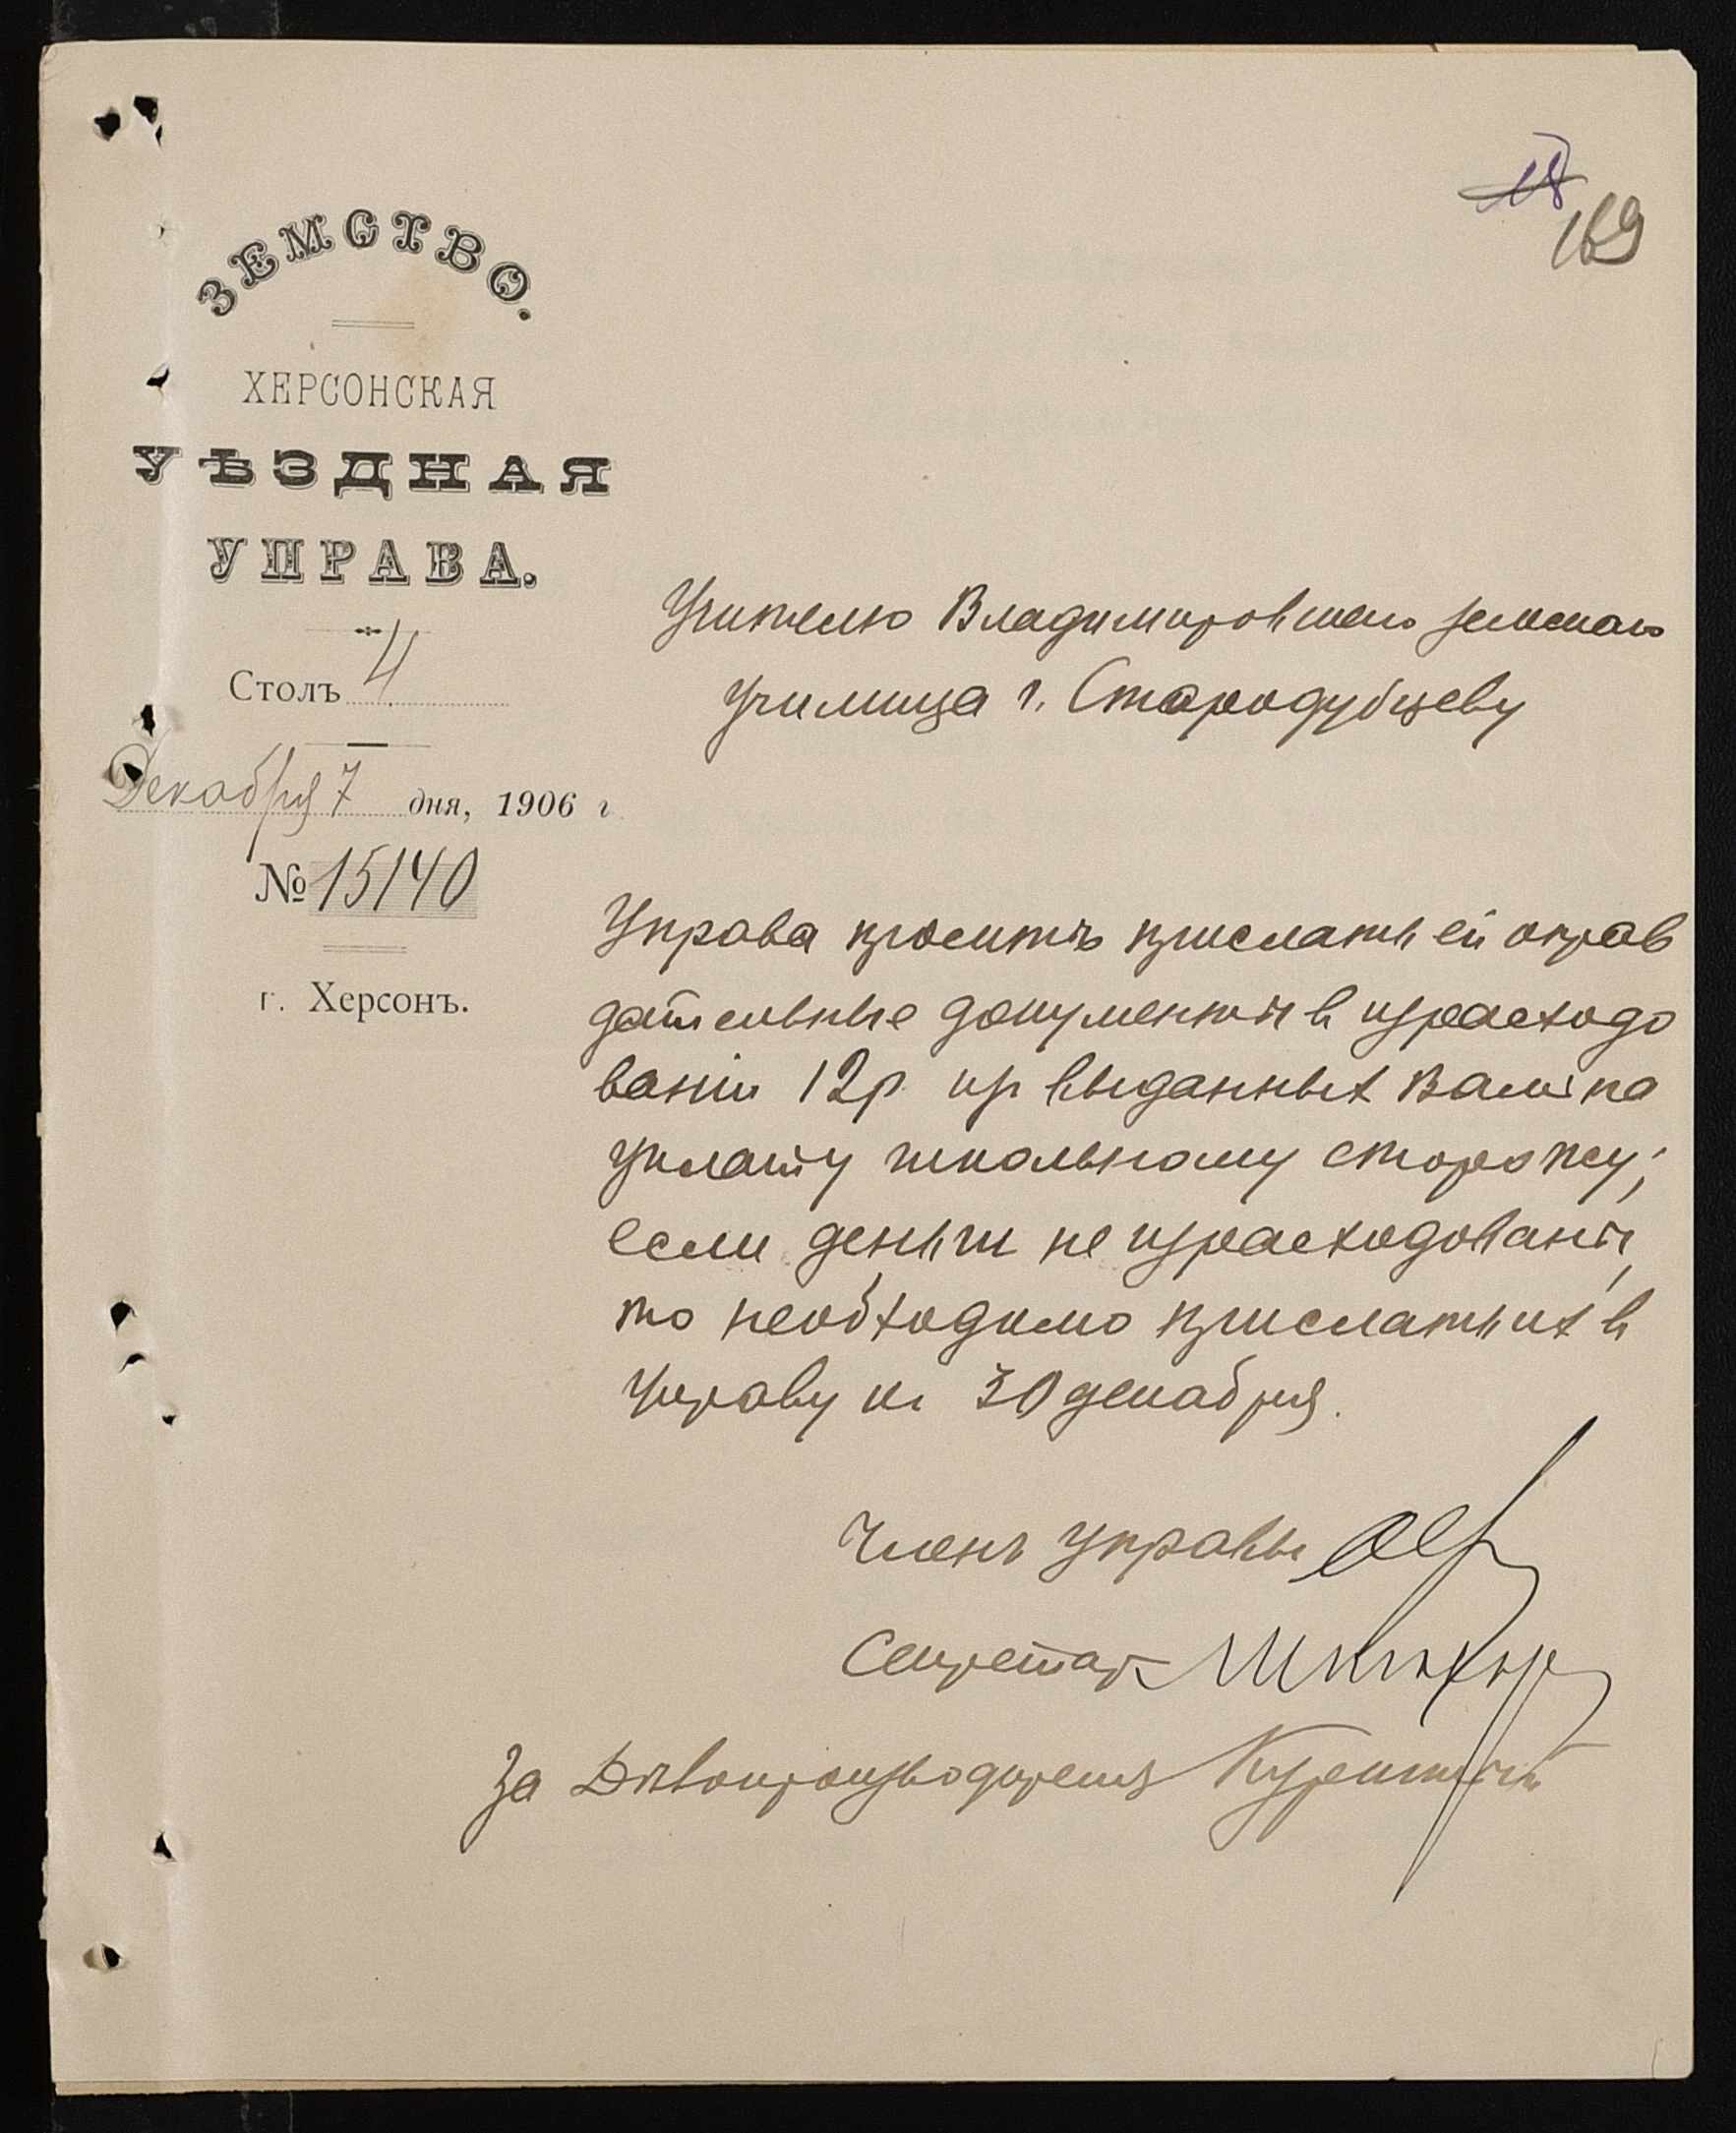 169
ЗЕМСТВО.
ХЕРСОНСКАЯ
УѢЗДНАЯ
УПРАВА.
Столъ 4
Декабря 7 дня, 1906 г
№ 15140
г. Херсонъ.
Учителю Владимировскаго земскаго
училища г. Стародубцеву
Управа проситъ прислать ей оправ
дательные документы в израсходо
ваніи 12 р. из выданныхъ Вамъ на
уплату школьному сторожу;
если деньги не израсходованы,
то необходимо прислать их в
управу к 30 декабря.
Членъ управы
Секретарь
За Дѣлопроизводителя